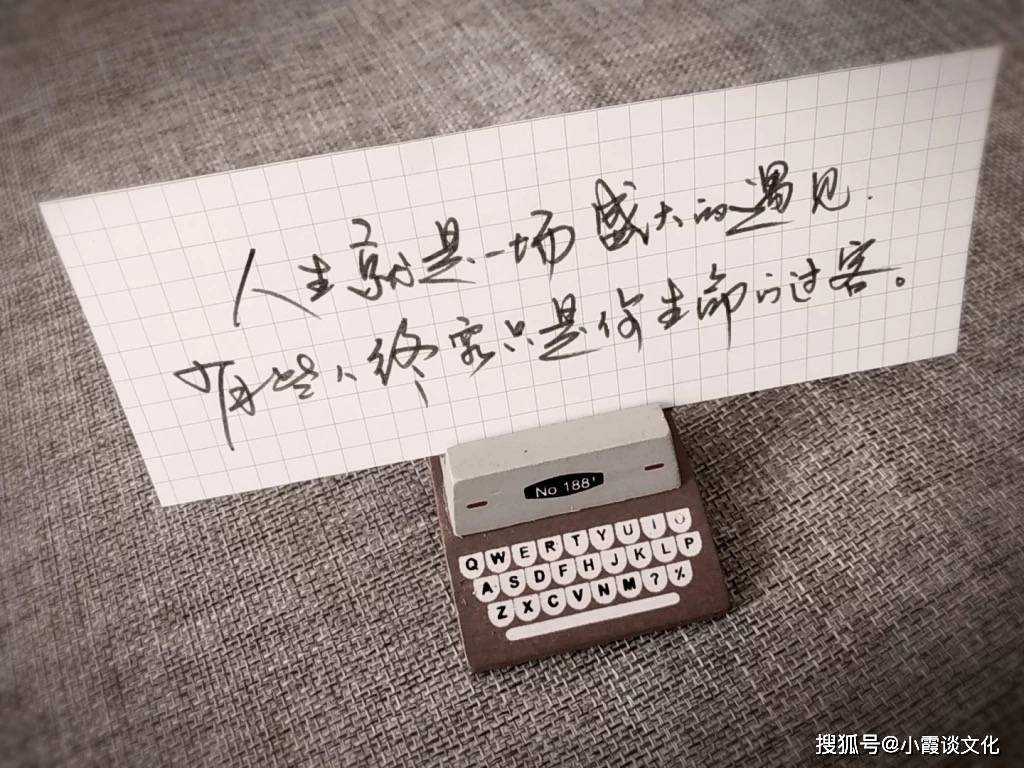 人生就是一场盛大的遇见.
有些人终究只是你生命的过客。
No 188'
Q W E R T Y U I O
A S D F H J K L P
Z X C V N M ? %
搜狐号@小霞谈文化